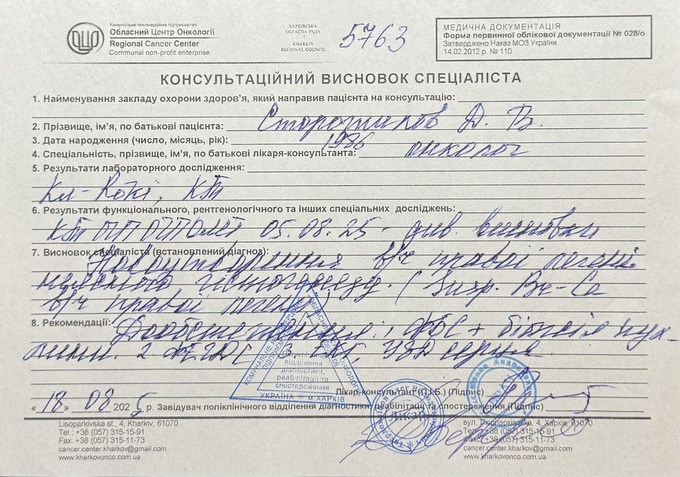 Комунальне некомерційне підприємство
Обласний Центр Онкології
Regional Cancer Center
Communal non-profit enterprise
ХАРКІВСЬКА
ОБЛАСНА РАДА
KHARKIV
REGIONAL COUNCIL
5763
МЕДИЧНА ДОКУМЕНТАЦІЯ
Форма первинної облікової документації № 028/о
Затверджено Наказ МОЗ України
14.02.2012 р. № 110
КОНСУЛЬТАЦІЙНИЙ ВИСНОВОК СПЕЦІАЛІСТА
1. Найменування закладу охорони здоров'я, який направив пацієнта на консультацію:
2. Прізвище, ім'я, по батькові пацієнта: Д. В.
3. Дата народження (число, місяць, рік): 1936
4. Спеціальність, прізвище, ім'я, по батькові лікаря-консультанта: онколог
5. Результати лабораторного дослідження:
КТ
6. Результати функціонального, рентгенологічного та інших спеціальних досліджень:
КТ 05.08.25 - див. висновки
7. Висновок спеціаліста (встановлений діагноз):
в/ч правої легені
(Susp. Br-Ca
в/ч правої легені)
8. Рекомендації: Дообстеження: 1 ФБС + біопсія пух-
лини. 2 УЗД серця
Лікар-консультант (П.І.Б.) (Підпис)
« 18 » 08 2025 р. Завідувач поліклінічного відділення діагностики, реабілітації та спостереження (Підпис)
відділення
діагностики,
реабілітації та
спостереження
УКРАЇНА м.ХАРКІВ
Lisoparkivska st., 4, Kharkiv, 61070
Tel.: +38 (057) 315-15-91
Fax: +38 (057) 315-11-73
cancer.center.kharkov@gmail.com
www.kharkovonco.com.ua
вул. Лісопарківська, 4, Харків, 61070
Тел.: +38 (057) 315-15-91
Факс: +38 (057) 315-11-73
cancer.center.kharkov@gmail.com
www.kharkovonco.com.ua